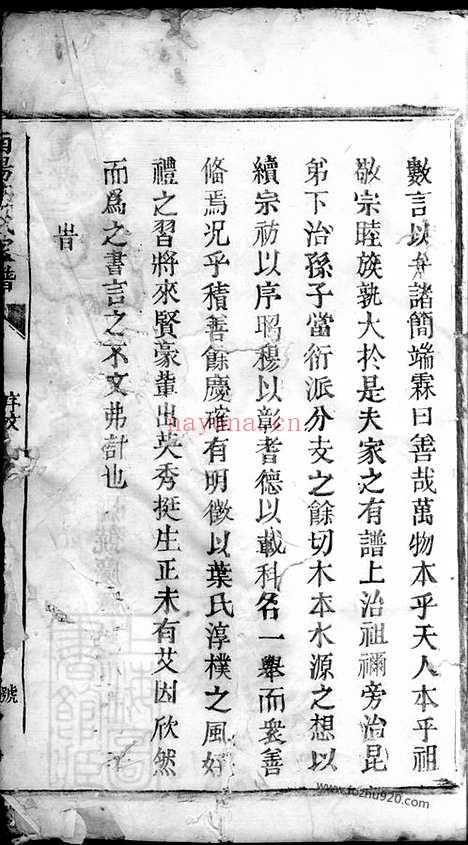 數言以弁諸簡端霖曰善哉萬物本乎天人本乎祖
敬宗睦族孰大於是夫家之有譜上治祖禰旁治昆
弟下治孫子當衍派分支之餘切木本水源之想以
續宗祊以序昭穆以彰耆德以載科名一舉而衆善
俻焉况乎積善餘慶確有明徵以葉氏淳樸之風好
禮之習將來賢豪輩出英秀挺生正未有艾因欣然
而爲之書言之不文弗計也
旹
氏家譜
序文
號
nayuna.cn
www.fozhu920.com